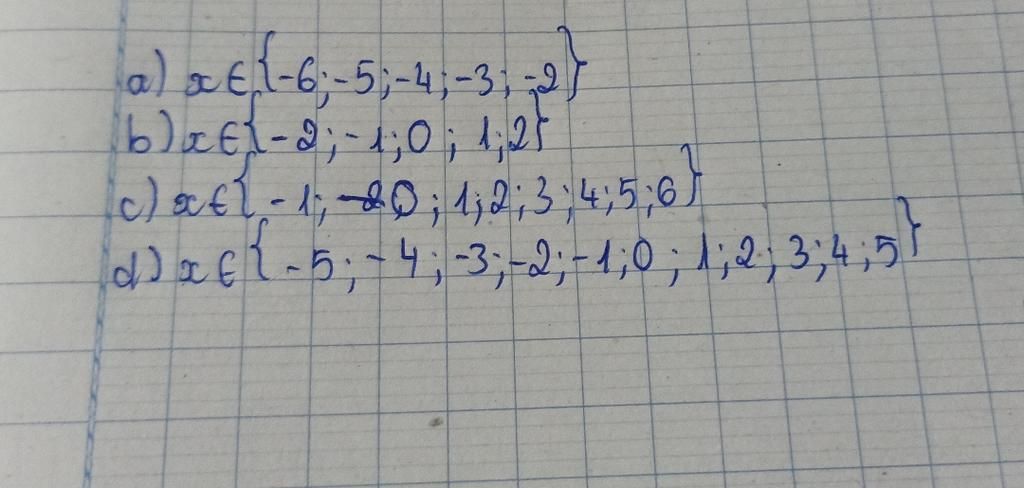 a) x∈{-6;-5;-4;-3;-2}
b) x∈{-2;-1;0;1;2}
c) x∈{-1;0;1;2;3;4;5;6}
d) x∈{-5;-4;-3;-2;-1;0;1;2;3;4;5}